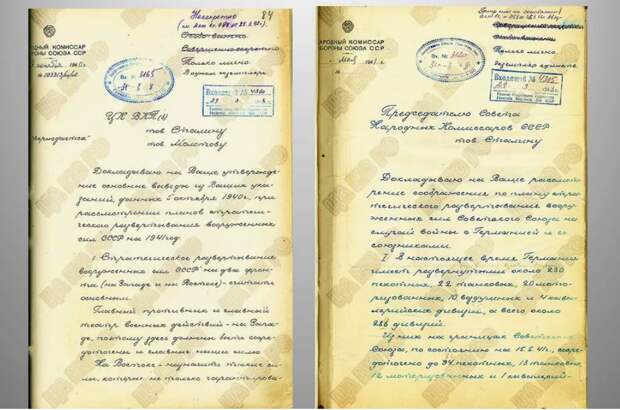 84
НАРОДНЫЙ КОМИССАР
ОБОРОНЫ СОЮЗА ССР
октября 1940г.
Особо важно
Совершенно секретно
Только лично
ЦК ВКП(б)
тов Сталину
тов Молотову
Докладываю на Ваше утвержде-
ние основные выводы из Ваших ука-
заний, данных 5 октября 1940г. при
рассмотрении планов стратеги-
ческого развертывания вооруженных
сил СССР на 1941 год.
1. Стратегическое развертывание
вооруженных сил СССР на два фрон-
та (на Западе и на Востоке) - считать
основным.
Главный противник и главный
театр военных действий - на Запа-
де, поэтому здесь должны быть сосре-
доточены и главные наши силы.
На Востоке - назначить такие си-
лы, которые не только гарантирова-
НАРОДНЫЙ КОМИССАР
ОБОРОНЫ СОЮЗА ССР
Мая 1941г.
Особо важно
Только лично
Председателю Совета
Народных Комиссаров СССР
тов Сталину
Докладываю на Ваше рассмот-
рение соображения по плану стра-
тегического развертывания воору-
женных сил Советского Союза на
случай войны с Германией и ее
союзниками.
I. В настоящее время Германия
имеет развернутыми около 230
пехотных, 22 танковых, 20 мото-
ризованных, 10 воздушных и 4 кава-
лерийских дивизий, а всего около
286 дивизий.
Из них на границах Советского
Союза, по состоянию на 15.5.41г., сосре-
доточено до
пехотных, 13 танковых
12 моторизованных и 1 кавалерий-